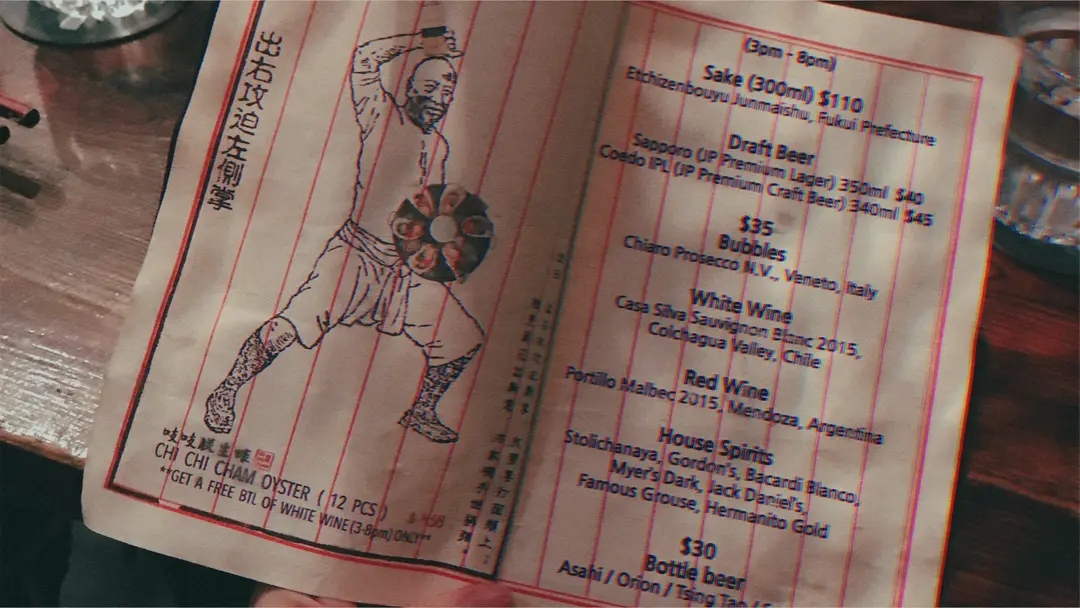 出右攻迫左側掌
吱吱
CHI CHI CHAM OYSTER ( 12 PCS )
**GET A FREE BTL OF WHITE WINE (3-8pm) ONLY**
(3pm - 8pm)
Sake (300ml) $110
Etchizenbouyu Junmaishu, Fukui Prefecture
Draft Beer
Sapporo (JP Premium Lager) 350ml $40
Coedo IPL (JP Premium Craft Beer) 340ml $45
$35
Bubbles
Chiaro Prosecco N.V., Veneto, Italy
White Wine
Casa Silva Sauvignon Blanc 2015,
Colchagua Valley, Chile
Red Wine
Portillo Malbec 2015, Mendoza, Argentina
House Spirits
Stolichanaya, Gordon's, Bacardi Blanco,
Myer's Dark, Jack Daniel's,
Famous Grouse, Hermanito Gold
$30
Bottle beer
Asahi / Orion / Tsing Tao /